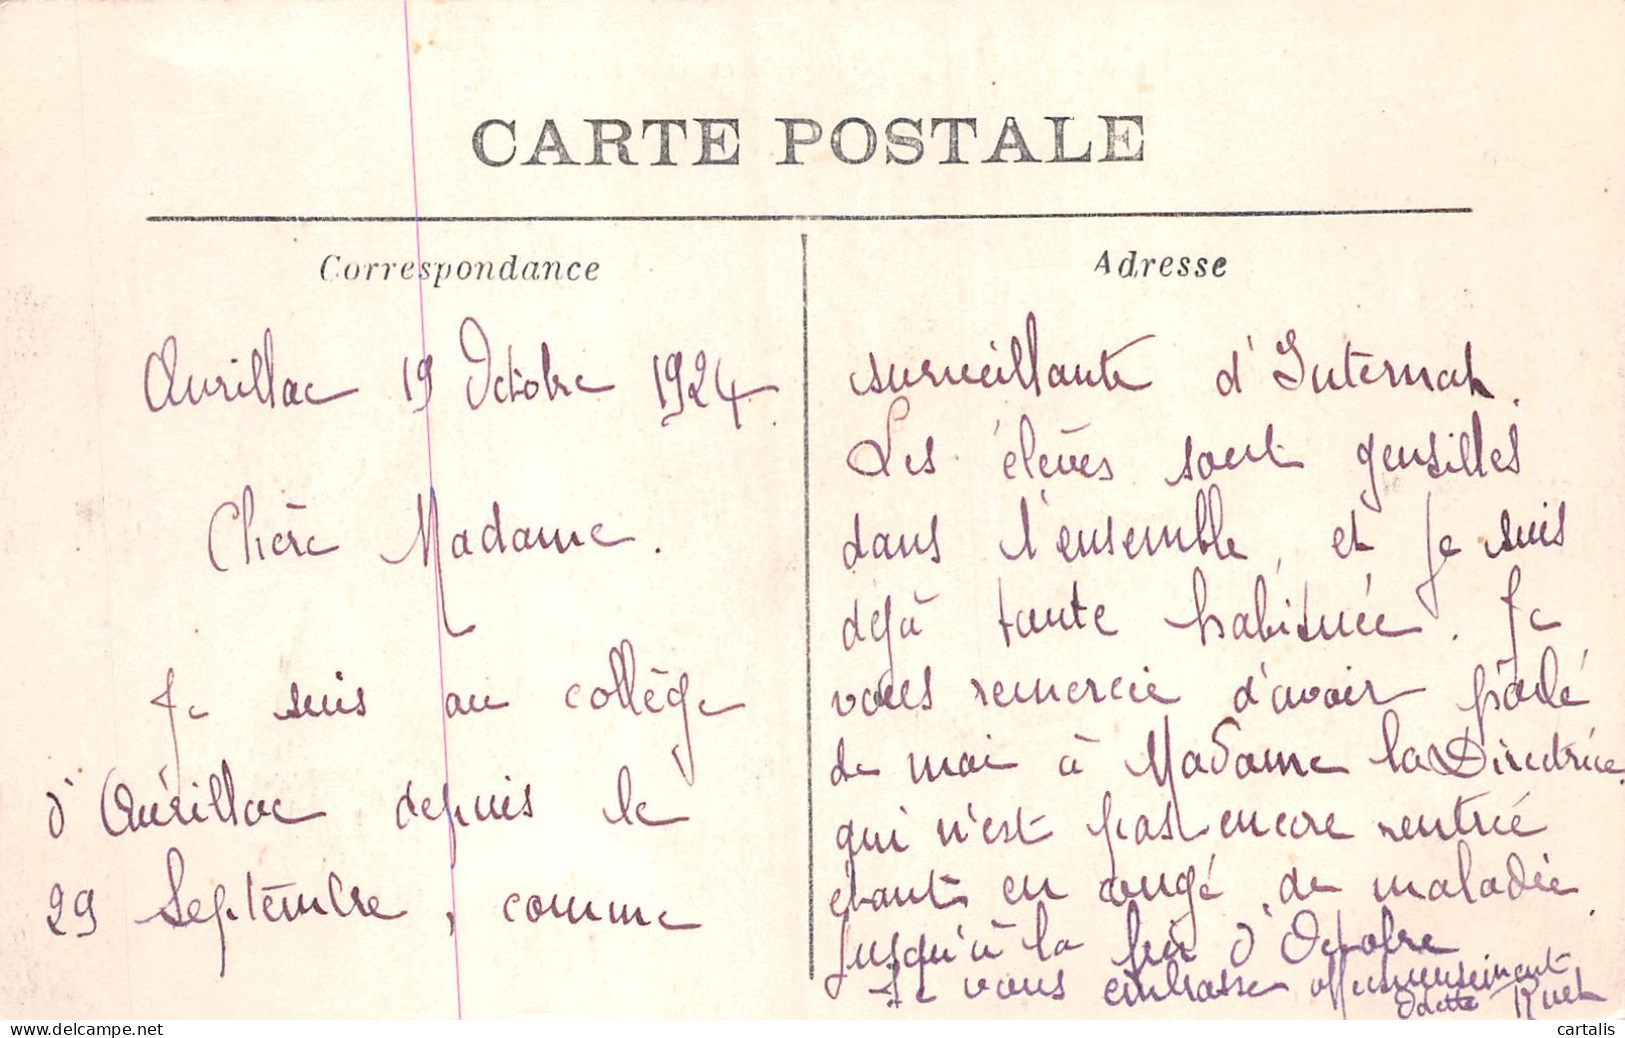 CARTE POSTALE
Correspondance
Aurillac 19 Octobre 1924.
Chère Madame.
Je suis au collège
d'Aurillac depuis le
29 Septembre, comme
Adresse
surveillante d'Internat.
Les élèves sont gentilles
dans l'ensemble, et je suis
déjà toute habituée. Je
vous remercie d'avoir parlé
de moi à Madame la Directrice
qui n'est pas encore rentrée
étant en congé de maladie
jusqu'à la fin d'Octobre.
Je vous embrasse affectueusement
Odette
cartalis